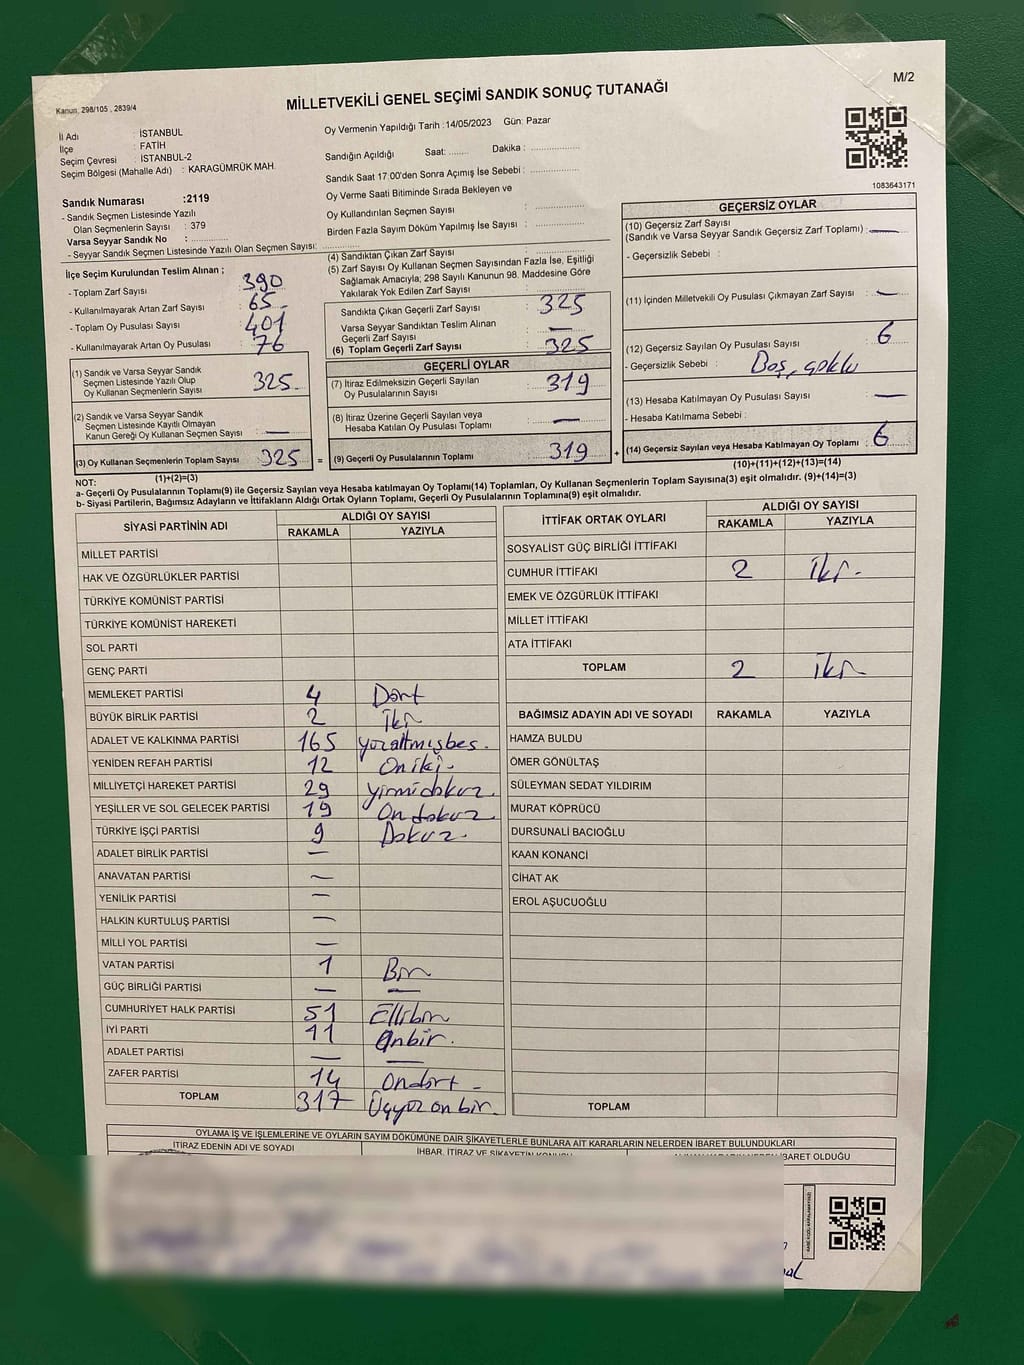 Kanun, 298/105 , 2839/4
MİLLETVEKİLİ GENEL SEÇİMİ SANDIK SONUÇ TUTANAĞI
M/2
İl Adı : İSTANBUL
İlçe : FATİH
Seçim Çevresi : İSTANBUL-2
Seçim Bölgesi (Mahalle Adı) : KARAGÜMRÜK MAH.
Oy Vermenin Yapıldığı Tarih :14/05/2023 Gün: Pazar
Sandığın Açıldığı Saat: ........ Dakika : ..............
Sandık Saat 17:00'den Sonra Açımış İse Sebebi : ..............
Oy Verme Saati Bitiminde Sırada Bekleyen ve
Oy Kullandırılan Seçmen Sayısı : ..............
Birden Fazla Sayım Döküm Yapılmış İse Sayısı : ..............
1083643171
Sandık Numarası :2119
- Sandık Seçmen Listesinde Yazılı
Olan Seçmenlerin Sayısı : 379
Varsa Seyyar Sandık No : ..............
- Seyyar Sandık Seçmen Listesinde Yazılı Olan Seçmen Sayısı: ..............
İlçe Seçim Kurulundan Teslim Alınan ;
- Toplam Zarf Sayısı : 390
- Kullanılmayarak Artan Zarf Sayısı : 65
- Toplam Oy Pusulası Sayısı : 401
- Kullanılmayarak Artan Oy Pusulası : 76
(1) Sandık ve Varsa Seyyar Sandık
Seçmen Listesinde Yazılı Olup
Oy Kullanan Seçmenlerin Sayısı : 325
(2) Sandık ve Varsa Seyyar Sandık
Seçmen Listesinde Kayıtlı Olmayan
Kanun Gereği Oy Kullanan Seçmen Sayısı : —
(3) Oy Kullanan Seçmenlerin Toplam Sayısı 325 =
(1)+(2)=(3)
(4) Sandıktan Çıkan Zarf Sayısı : ..............
(5) Zarf Sayısı Oy Kullanan Seçmen Sayısından Fazla İse, Eşitliği
Sağlamak Amacıyla; 298 Sayılı Kanunun 98. Maddesine Göre
Yakılarak Yok Edilen Zarf Sayısı : ..............
Sandıkta Çıkan Geçerli Zarf Sayısı : 325
Varsa Seyyar Sandıktan Teslim Alınan
Geçerli Zarf Sayısı : —
(6) Toplam Geçerli Zarf Sayısı : 325
GEÇERLİ OYLAR
(7) İtiraz Edilmeksizin Geçerli Sayılan
Oy Pusulalarının Sayısı : 319
(8) İtiraz Üzerine Geçerli Sayılan veya
Hesaba Katılan Oy Pusulası Toplamı : —
(9) Geçerli Oy Pusulalarının Toplamı : 319 +
GEÇERSİZ OYLAR
(10) Geçersiz Zarf Sayısı
(Sandık ve Varsa Seyyar Sandık Geçersiz Zarf Toplamı) : —
- Geçersizlik Sebebi :
(11) İçinden Milletvekili Oy Pusulası Çıkmayan Zarf Sayısı : —
(12) Geçersiz Sayılan Oy Pusulası Sayısı : 6
- Geçersizlik Sebebi : Boş,
(13) Hesaba Katılmayan Oy Pusulası Sayısı : —
- Hesaba Katılmama Sebebi :
(14) Geçersiz Sayılan veya Hesaba Katılmayan Oy Toplamı : 6
(10)+(11)+(12)+(13)=(14)
NOT:
a- Geçerli Oy Pusulalarının Toplamı(9) ile Geçersiz Sayılan veya Hesaba katılmayan Oy Toplamı(14) Toplamları, Oy Kullanan Seçmenlerin Toplam Sayısına(3) eşit olmalıdır. (9)+(14)=(3)
b- Siyasi Partilerin, Bağımsız Adayların ve İttifakların Aldığı Ortak Oyların Toplamı, Geçerli Oy Pusulalarının Toplamına(9) eşit olmalıdır.
SİYASİ PARTİNİN ADI ALDIĞI OY SAYISI
RAKAMLA YAZIYLA
MİLLET PARTİSİ
HAK VE ÖZGÜRLÜKLER PARTİSİ
TÜRKİYE KOMÜNİST PARTİSİ
TÜRKİYE KOMÜNİST HAREKETİ
SOL PARTİ
GENÇ PARTİ
MEMLEKET PARTİSİ 4 Dört
BÜYÜK BİRLİK PARTİSİ 2 İki
ADALET VE KALKINMA PARTİSİ 165 yüzaltmışbeş.
YENİDEN REFAH PARTİSİ 12 Oniki-
MİLLİYETÇİ HAREKET PARTİSİ 29 yirmidokuz.
YEŞİLLER VE SOL GELECEK PARTİSİ 19 Ondokuz.
TÜRKİYE İŞÇİ PARTİSİ 9 Dokuz.
ADALET BİRLİK PARTİSİ —
ANAVATAN PARTİSİ —
YENİLİK PARTİSİ —
HALKIN KURTULUŞ PARTİSİ —
MİLLİ YOL PARTİSİ —
VATAN PARTİSİ 1 Bir
GÜÇ BİRLİĞİ PARTİSİ — —
CUMHURİYET HALK PARTİSİ 51 Ellibir
İYİ PARTİ 11 Onbir.
ADALET PARTİSİ — —
ZAFER PARTİSİ 14 Ondört -
TOPLAM 317 Üçyüz on bir.
İTTİFAK ORTAK OYLARI ALDIĞI OY SAYISI
RAKAMLA YAZIYLA
SOSYALİST GÜÇ BİRLİĞİ İTTİFAKI
CUMHUR İTTİFAKI 2 İki-
EMEK VE ÖZGÜRLÜK İTTİFAKI
MİLLET İTTİFAKI
ATA İTTİFAKI
TOPLAM 2 İki
BAĞIMSIZ ADAYIN ADI VE SOYADI RAKAMLA YAZIYLA
HAMZA BULDU
ÖMER GÖNÜLTAŞ
SÜLEYMAN SEDAT YILDIRIM
MURAT KÖPRÜCÜ
DURSUNALİ BACIOĞLU
KAAN KONANCİ
CİHAT AK
EROL AŞUCUOĞLU
TOPLAM
OYLAMA İŞ VE İŞLEMLERİNE VE OYLARIN SAYIM DÖKÜMÜNE DAİR ŞİKAYETLERLE BUNLARA AİT KARARLARIN NELERDEN İBARET BULUNDUKLARI
İTİRAZ EDENİN ADI VE SOYADI İHBAR, İTİRAZ VE ŞİKAYETİN KONUSU İBARET OLDUĞU